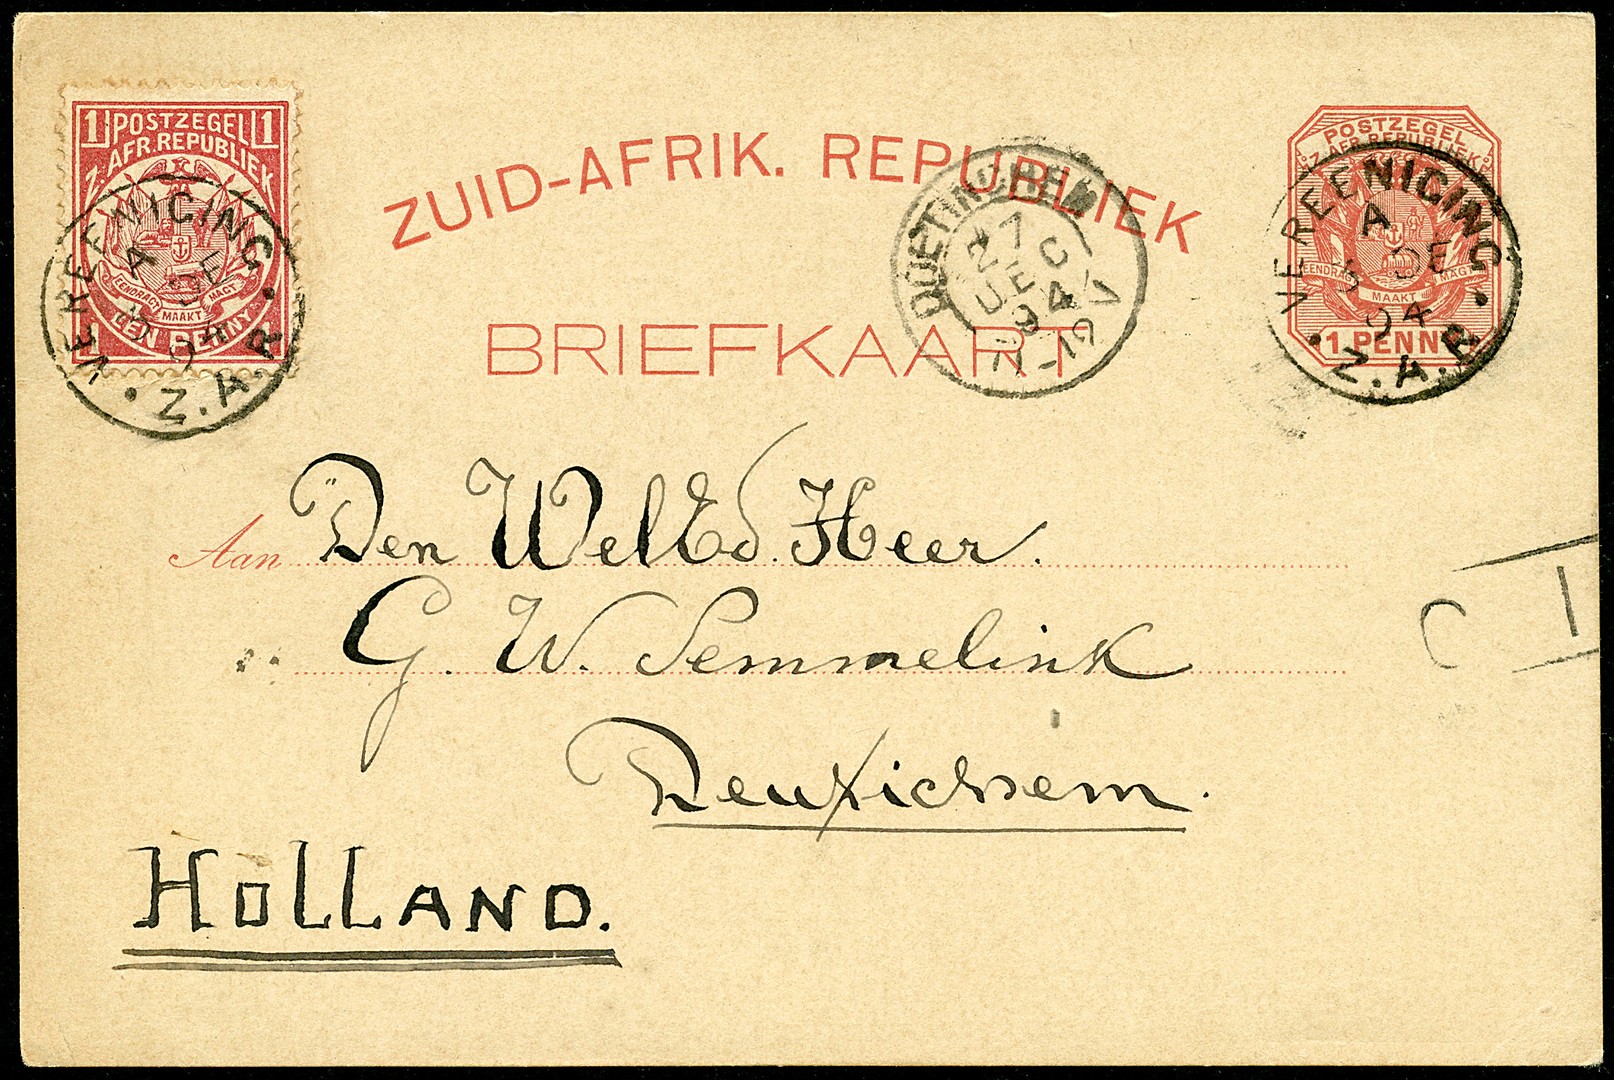 1 POSTZEGEL 1
Z. AFR. REPUBLIEK
EENDRACHT MAAKT MAGT
EEN PENNY
VEREENIGING
A
5 DE
94
Z.A.R.
ZUID-AFRIK. REPUBLIEK
BRIEFKAART
27
DEC
94
11-12 V
POSTZEGEL
Z. AFR. REPUBLIEK
EENDRAGT MAAKT MAGT
1 PENNY
VEREENIGING
A
5 DE
94
Z.A.R.
Aan Den WelEd. Heer.
G. W. Semmelink
Deutichem.
HOLLAND.